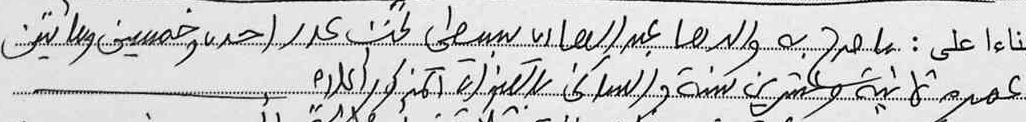 ناءا على : ما صرح به والدها عبد القادر سبسطي تحت عدد احدى وخمسين ومائتين
عمره ثمانية وعشرين سنة والساكن بالعنوان المذكور أعلاه